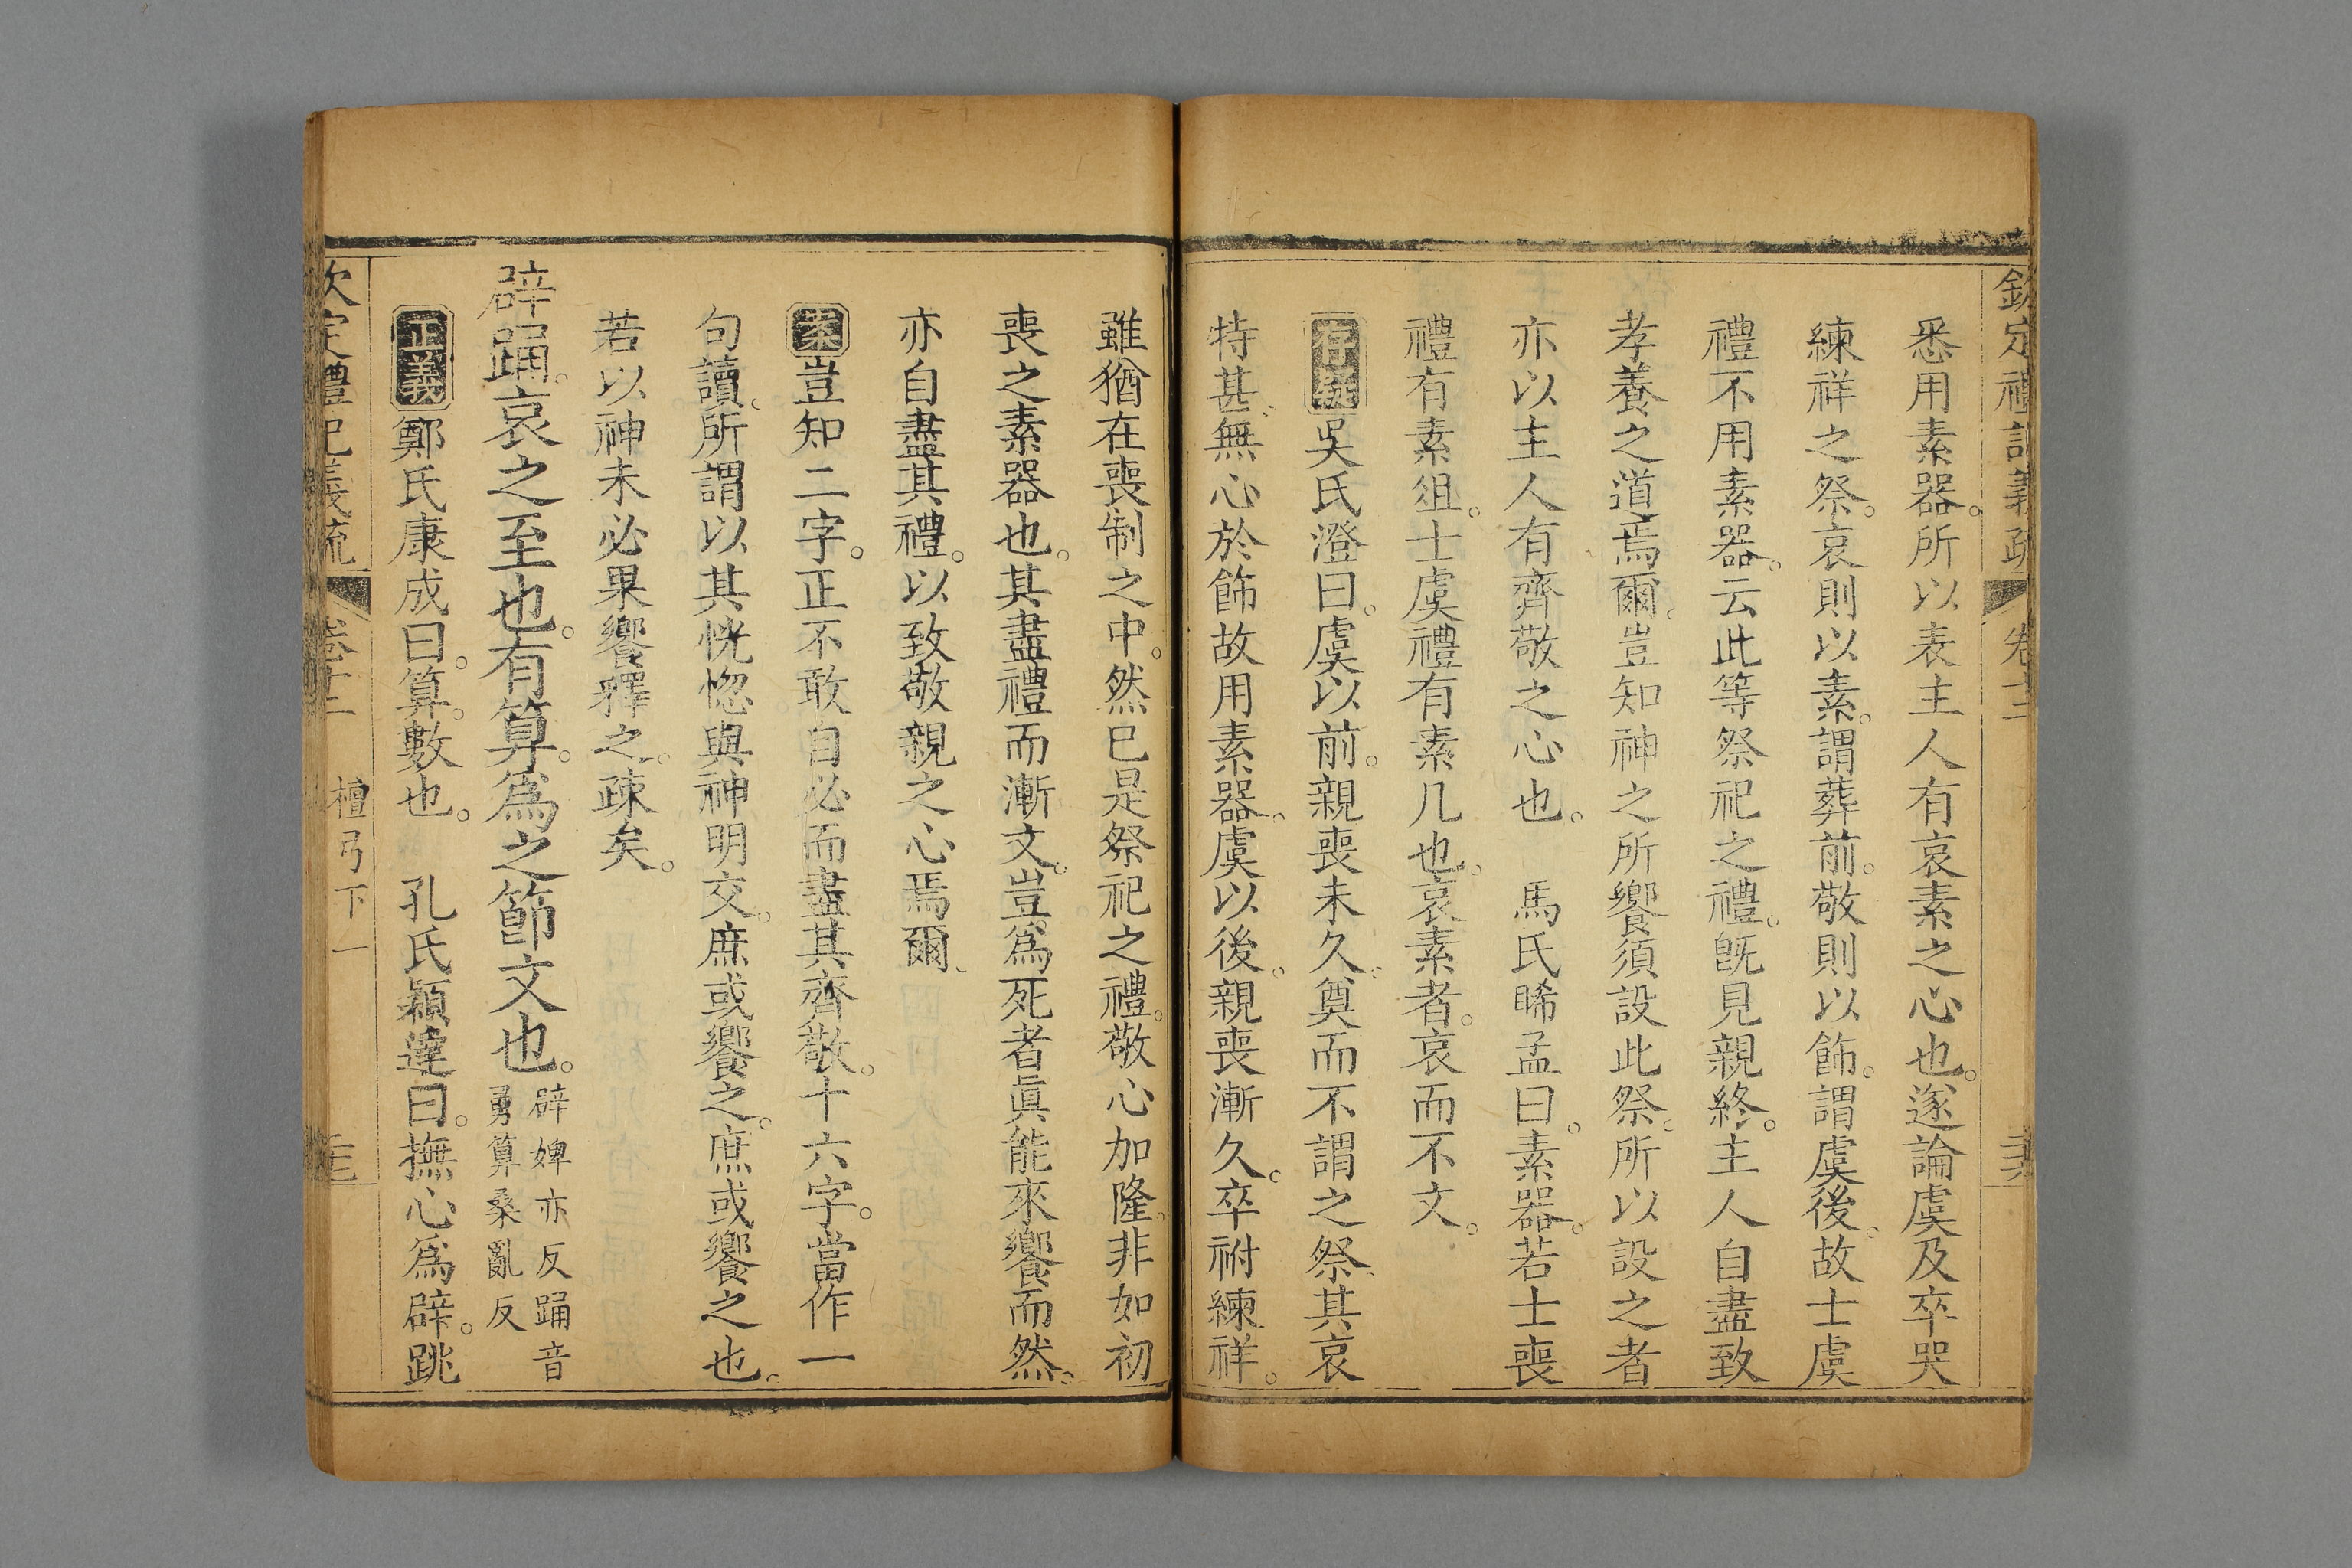 欽定禮記義疏 卷十二 二六
悉用素器。所以表主人有哀素之心也。遂論虞及卒哭
練祥之祭。哀則以素。謂葬前。敬則以飾。謂虞後。故士虞
禮不用素器。云此等祭祀之禮。旣見親終。主人自盡致
孝養之道焉爾。豈知神之所饗須設此祭。所以設之者
亦以主人有齊敬之心也。 馬氏睎孟曰。素器。若士喪
禮有素俎。士虞禮有素几也。哀素者。哀而不文。
存疑 吳氏澄曰。虞以前。親喪未久。奠而不謂之祭。其哀
特甚。無心於飾。故用素器。虞以後。親喪漸久。卒祔練祥。
雖猶在喪制之中。然已是祭祀之禮。敬心加隆。非如初
喪之素器也。其盡禮而漸文。豈爲死者眞能來饗而然。
亦自盡其禮。以致敬親之心焉爾。
案 豈知二字。正不敢自必而盡其齊敬。十六字。當作一
句讀。所謂以其恍惚與神明交。庶或饗之。庶或饗之也。
若以神未必果饗釋之。疎矣。
辟踊。哀之至也。有算。爲之節文也。辟婢亦反踊音
勇算桑亂反
正義 鄭氏康成曰。算。數也。 孔氏穎達曰。撫心爲辟。跳
欽定禮記義疏 卷十二 檀弓下一 二七